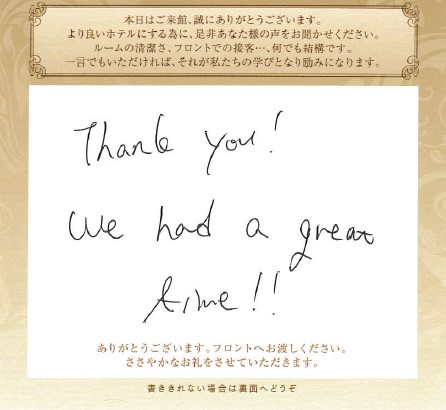 本日はご来館、誠にありがとうございます。
より良いホテルにする為に、是非あなた様の声をお聞かせください。
ルームの清潔さ、フロントでの接客…、何でも結構です。
一言でもいただければ、それが私たちの学びとなり励みになります。
Thank you!
We had a great
time!!
ありがとうございます。フロントへお渡しください。
ささやかなお礼をさせていただきます。
書ききれない場合は裏面へどうぞ